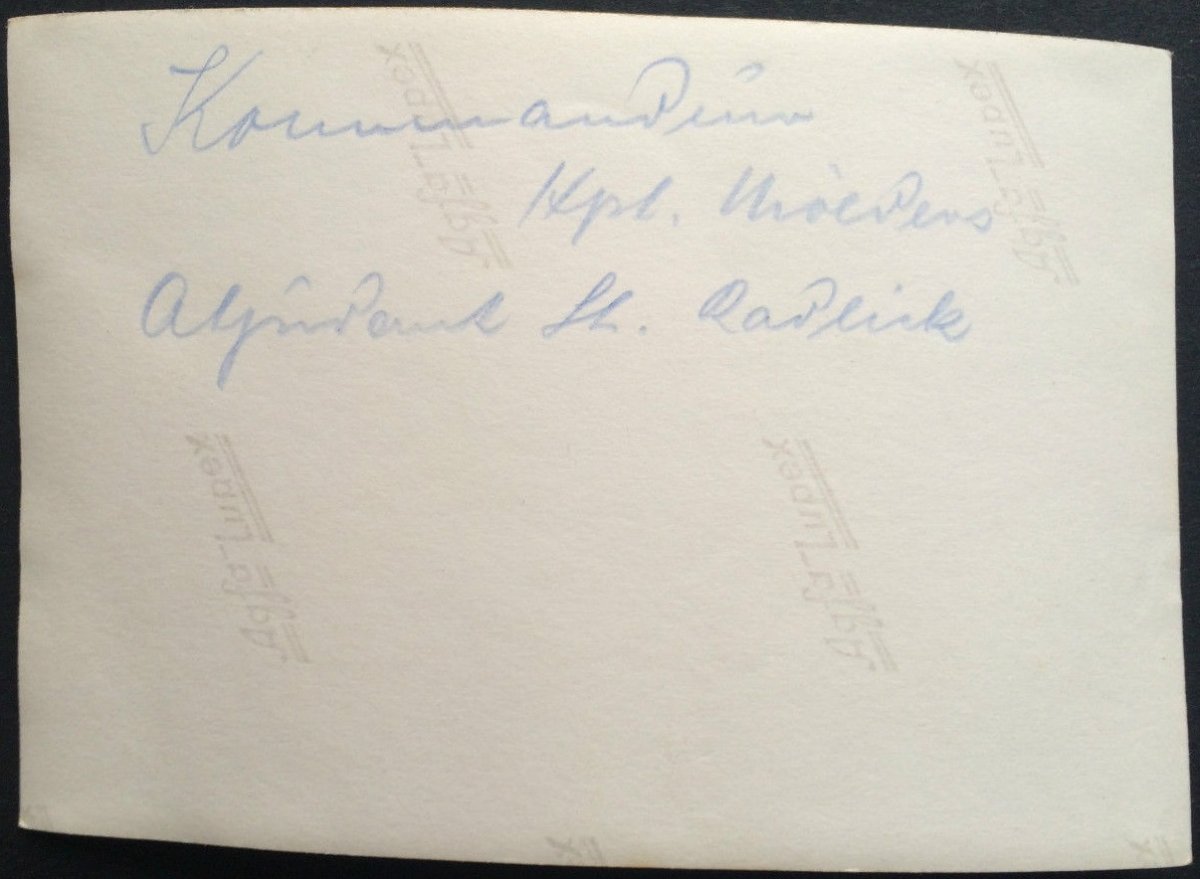 Kommandeur
Hptm. Mölders
Adjudant Lt. Radlick
Agfa-Lupex
Agfa-Lupex
Agfa-Lupex
Agfa-Lupex